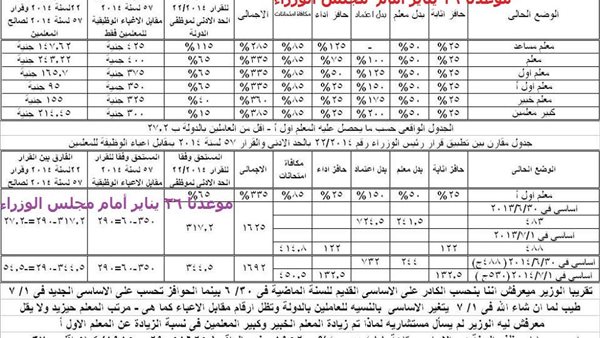 موعدنا ٢٦ يناير أمام مجلس الوزراء
الوضع الحالى | حافز اثابة | بدل معلم | بدل اعتماد | حافز اداء | مكافاة امتحانات | الاجمالى | للقرار ٢٢/٢٠١٤ الحد الادنى لموظفى الدولة | ٥٧ لسنة ٢٠١٤ مقابل الاعباء الوظيفية للمعلمين فقط | ٢٢ لسنة ٢٠١٤ ٥٧ لسنة ٢٠١٤ لصالح المعلمين
معلم مساعد | ٢٥% | ٥٠% | - | ١٢٥% | ٨٥% | ٢٨٥% | ١١٥% | ٤٢٥ جنية | ١٤٧.٦٢ جنية
معلم | ٢٥% | ٥٠% | ١٠٠% | ٧٥% | ٨٥% | ٣٣٥% | ٦٥% | ٤٠٠ جنية | ٢٤٣.٢٢ جنية
معلم أول | ٢٥% | ٥٠% | ١٢٥% | ٥٠% | ٨٥% | ٣٣٥% | ٦٥% | ٣٧٥ جنية | ١٦٥.٧ جنية
معلم أول أ | ٢٥% | ٥٠% | ١٥٠% | ٢٥% | ٨٥% | ٣٣٥% | ٦٥% | ٣٥٠ جنية | ٩٥ جنية
معلم خبير | ٢٥% | ٥٠% | ١٧٥% | ٢٥% | ٨٥% | ٣٦٠% | ٤٠% | ٣٢٥ جنية | ١٥٥ جنية
كبير معلمين | ٢٥% | ٥٠% | ٢٠٠% | ٢٥% | ٨٥% | ٣٨٥% | ١٥% | ٣٠٠ جنية | ٢١٤.٤٥ جنية
الجدول الواقعى حسب ما يحصل عليه المعلم اول أ - اقل من العاملين بالدولة ب ٢٧.٢
جدول مقارن بين تطبيق قرار رئيس الوزراء رقم ٢٢/٢٠١٤ بالحد الادنى والقرار ٥٧ لسنة ٢٠١٤ بمقابل اعباء الوظيفة للمعلمين
الوضع الحالى | حافز اثابة | بدل معلم | بدل اعتماد | حافز اداء | مكافاة امتحانات | الاجمالى | المستحق وفقا للقرار ٢٢/٢٠١٤ | المستحق وفقا للقرار ٥٧ لسنة ٢٠١٤ مقابل الاعباء الوظيفية | الفارق بين القرار ٢٢ لسنة ٢٠١٤ ٥٧ لسنة ٢٠١٤ لصالح
معلم اول أ | ٢٥% | ٥٠% | ١٥٠% | ٢٥% | ٨٥% | ٣٣٥% | ٦٥%
موعدنا ٢٦ يناير أمام مجلس الوزراء
اساسى فى ٢٠١٣/٦/٣٠
٤٨٣ | ٢٤١.٥ | ٧٢٤.٥ | ١٦٢٥ | ٣١٧.٢ | ٣٥٠-٦٠=٢٩٠ | ٣١٧.٢-٢٩٠=٢٧.٢
اساسى فى ٢٠١٣/٧/١
٤٨٨ | ١٢٢ | ١٢٢ | ٤١٤.٨
اساسى فى ٢٠١٤/٦/٣٠(٤٨٨ج) | ٢٤٤ | ٧٣٢ | ١٦٩٢ | ٣٤٤.٥ | ٣٥٠-٦٠=٢٩٠ | ٣٤٤.٥-٢٩٠=٥٤.٥
اساسى فى ٢٠١٤/٧/١(٥٣٠ج) | ١٣٢.٥ | ١٣٢.٥ | ٤٥٠.٥
تقريبا الوزير ميعرفش اننا بنحسب الكادر على الاساسى القديم للسنة الماضية فى ٦/٣٠ بينما الحوافز تحسب على الاساسى الجديد فى ٧/١
طيب لما ان شاء الله فى ٧/١ يتغير الاساسى بالنسبه للعاملين بالدولة وتظل ارقام مقابل الاعباء كما هى - مرتب المعلم حيزيد ولا يقل
معرفش ليه الوزير لم يسأل مستشاريه لماذا تم زيادة المعلم الخبير وكبير المعلمين فى نسبة الزيادة عن المعلم الاول أ